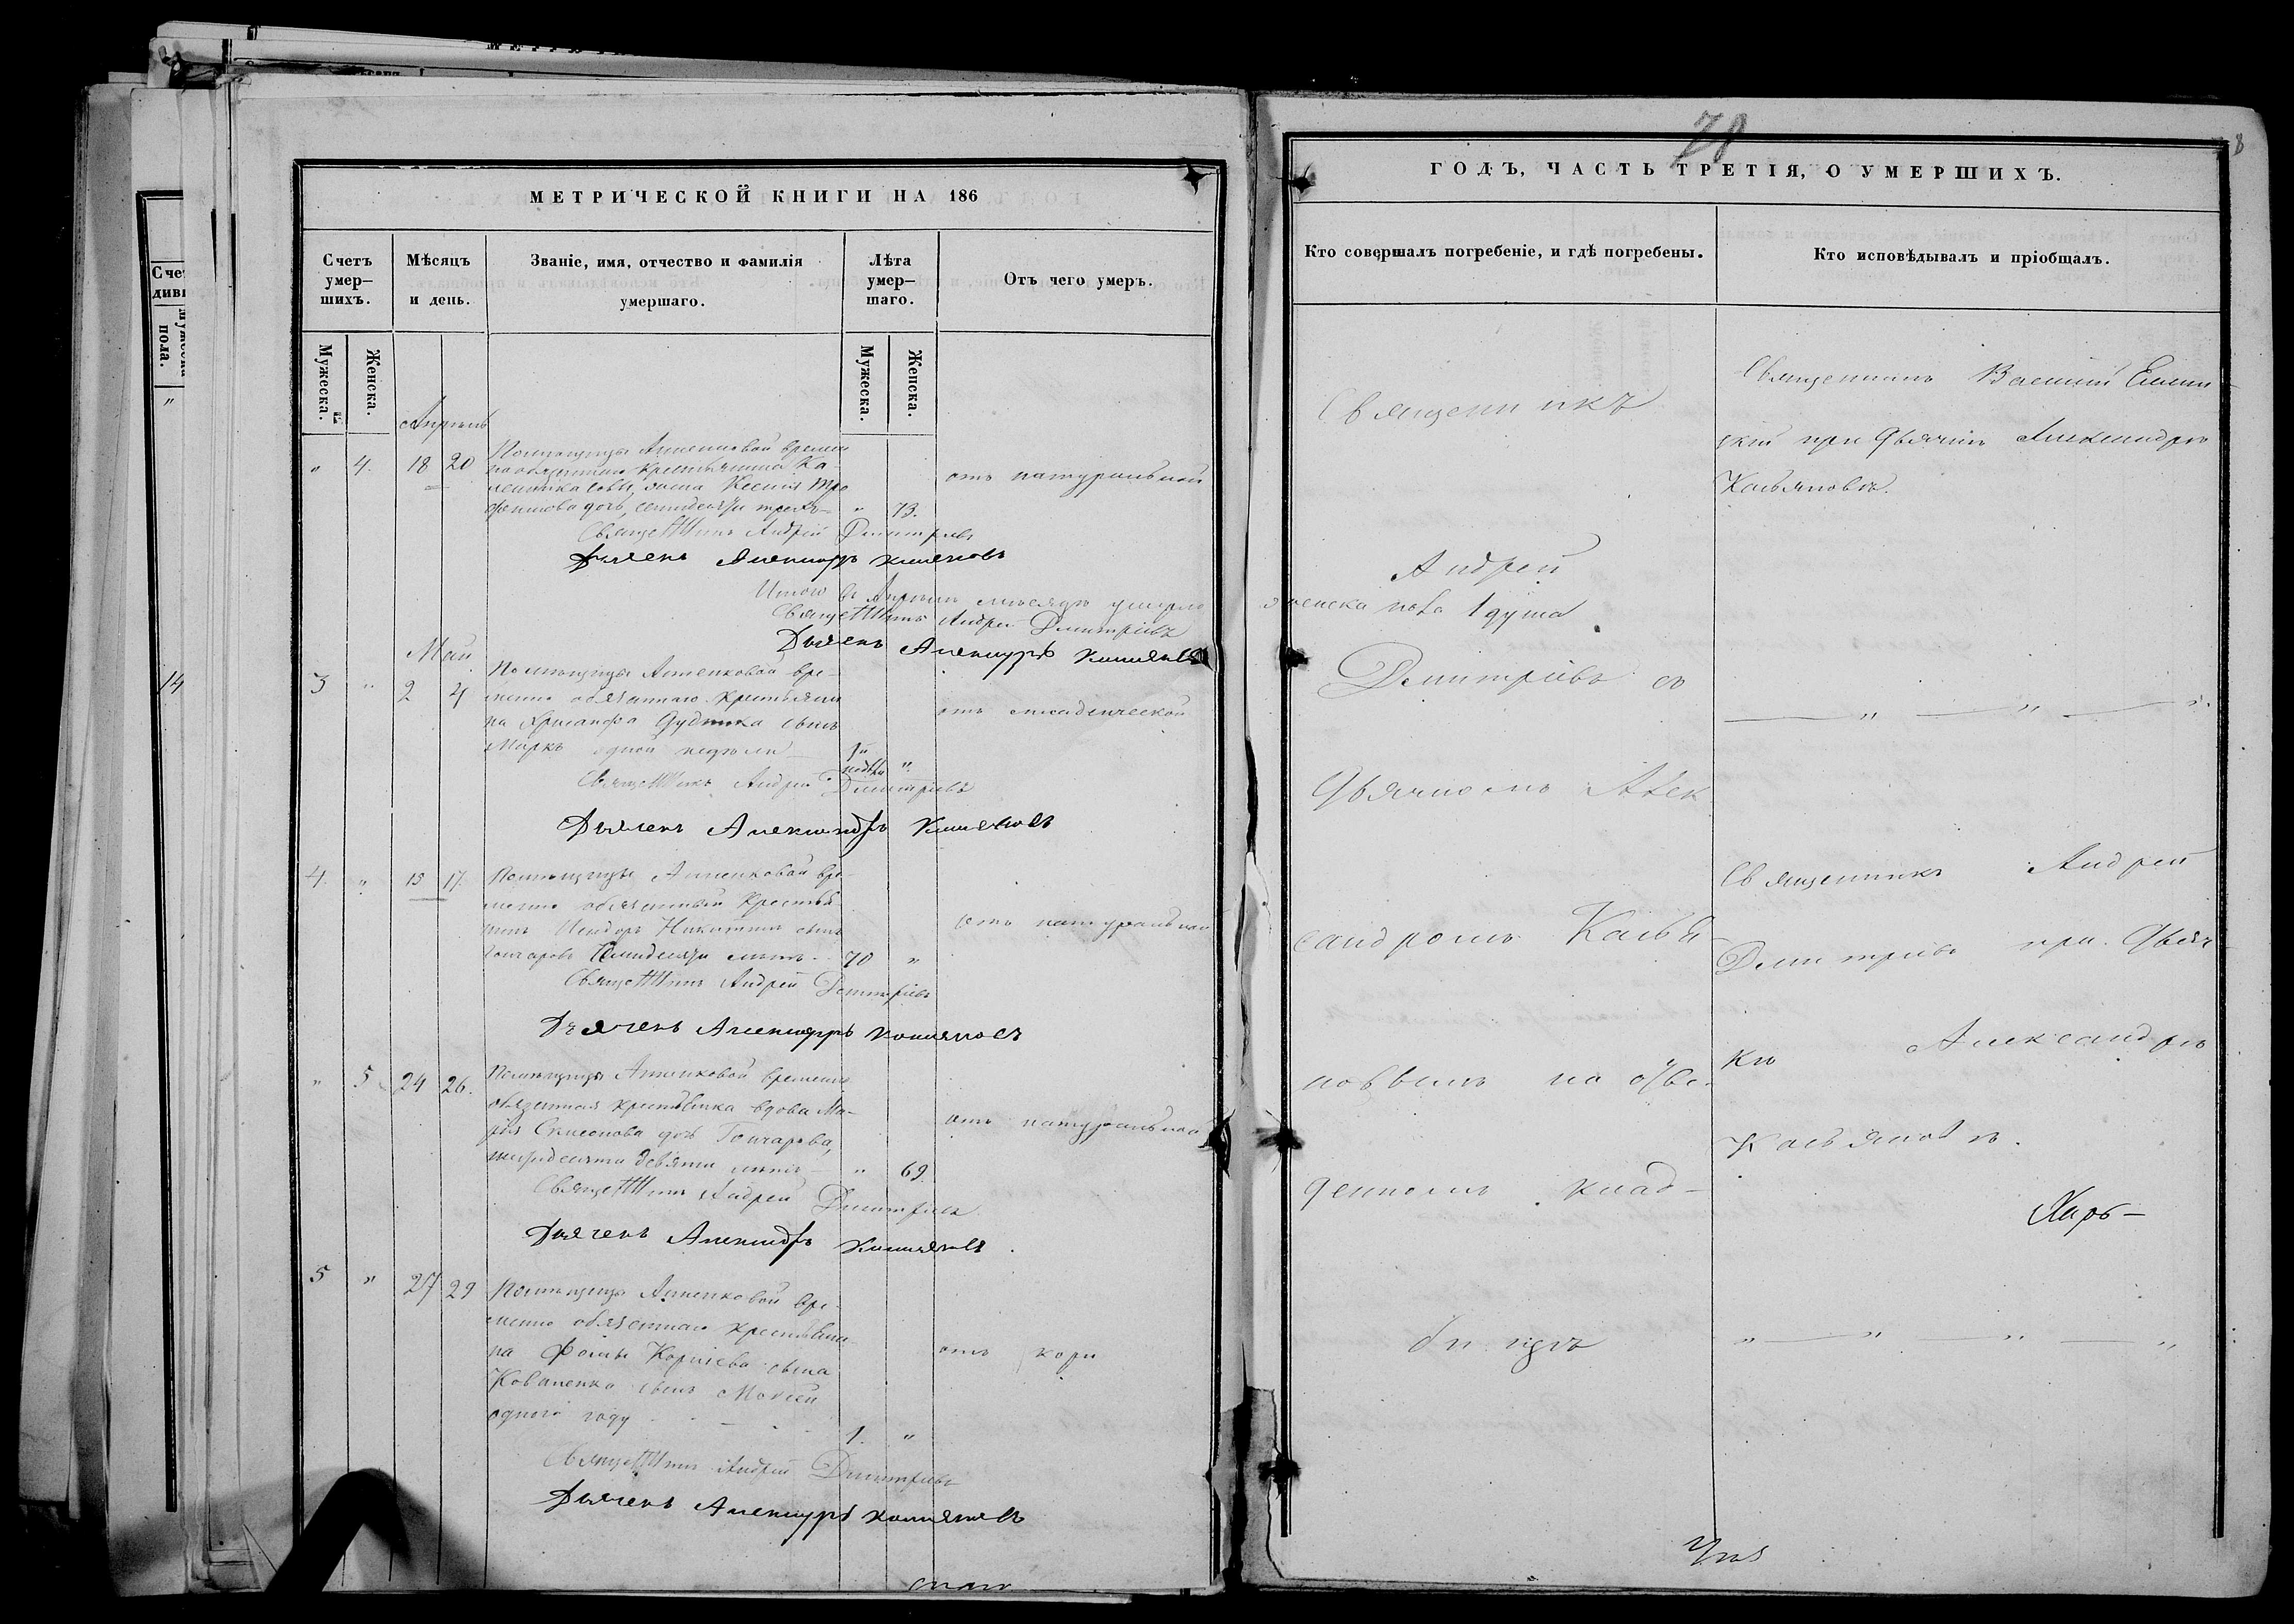 МЕТРИЧЕСКОЙ КНИГИ НА 186
Счетъ умер-
шихъ.
Мѣсяцъ
и день.
Званіе, имя, отчество и фамилія
умершаго.
Лѣта
умер-
шаго.
Отъ чего умеръ.
Мужеска.
Женска.
Мужеска.
Женска.
Апрель
" 4. 18 20
Помѣщицы Анненковой времен
но обязаннаго крестьянина Ка-
жена Ксенія Тро
фимова дочь, семидесяти трехъ " 73.
отъ натуральной
Священникъ Андрей Димитріевъ
Дьячекъ Александръ Касьяновъ
Итого въ Апрелѣ мѣсяцѣ умерло
женска пола 1 душа
Священникъ Андрей Димитріевъ
Дьячекъ Александръ Касьяновъ
Май
3 " 2 4
Помѣщицы Анненковой вре-
менно обязаннаго крестьяни
на Хрисанфа Дудника сынъ
Маркъ одной недѣли 1й недѣли "
отъ младенческой
Священникъ Андрей Димитріевъ
Дьячекъ Александръ Касьяновъ
4. " 15 17.
Помѣщицы Анненковой вре
менно обязанный крестья
нинъ Исидоръ Никитинъ сынъ
Гончаровъ семидесяти лѣтъ 70 "
отъ натуральной
Священникъ Андрей Димитріевъ
Дьячекъ Александръ Касьяновъ
" 5 24 26.
Помѣщицы Анненковой временно
обязанная крестьянка вдова Ма-
рія дочь Гончарова,
шестдесяти девяти лѣтъ " 69.
отъ натуральной
Священникъ Андрей Димитріевъ
Дьячекъ Александръ Касьяновъ
5 " 27 29
Помѣщицы Анненковой вре-
менно обязаннаго крестьяни
на Фомы Корніева сына
Коваленка сынъ Моисей
одного году 1. "
отъ кори
Священникъ Андрей Димитріевъ
Дьячекъ Александръ Касьяновъ
78
ГОДЪ, ЧАСТЬ ТРЕТІЯ, О УМЕРШИХЪ.
Кто совершалъ погребеніе, и гдѣ погребены.
Кто исповѣдывалъ и пріобщалъ.
Священникъ
Андрей
Димитріевъ съ
Дьячкомъ Алек
сандромъ Касья
новымъ на отве-
денномъ клад-
бищѣ
Священникъ Василій
при Дьячкѣ Александрѣ
Касьяновѣ.
Священникъ Андрей
Димитріевъ при Дьяч
кѣ Александрѣ
Касьяновѣ.
Харь-